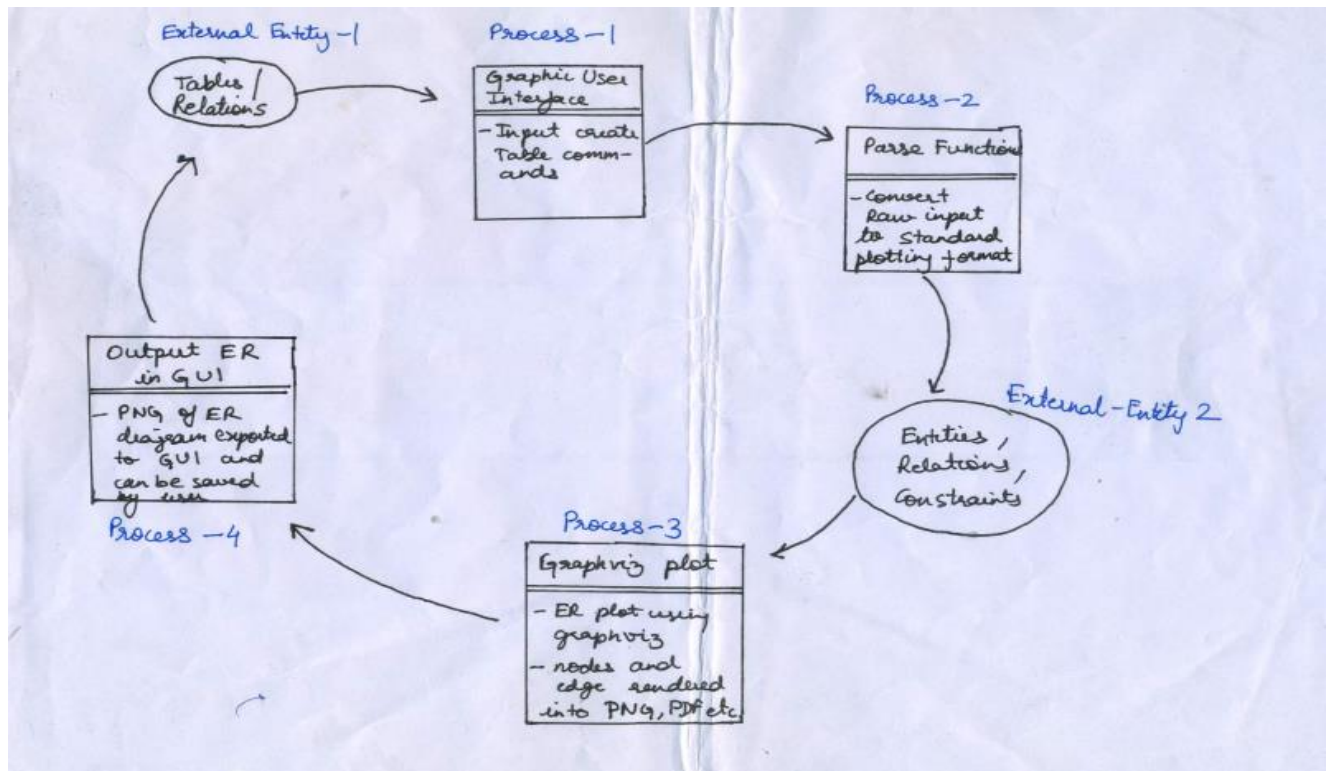 External Entity-1
Tables /
Relations
Process-1
Graphic User
Interface
- Input create
Table comm-
ands
Process-2
Parse Function
- Convert
Raw input
to standard
plotting format
External-Entity 2
Entities,
Relations,
Constraints
Process-3
Graphviz plot
- ER plot using
graphviz
- nodes and
edge rendered
into PNG, PDF etc
Output ER
in GUI
- PNG of ER
diagram exported
to GUI and
can be saved
by user
Process-4